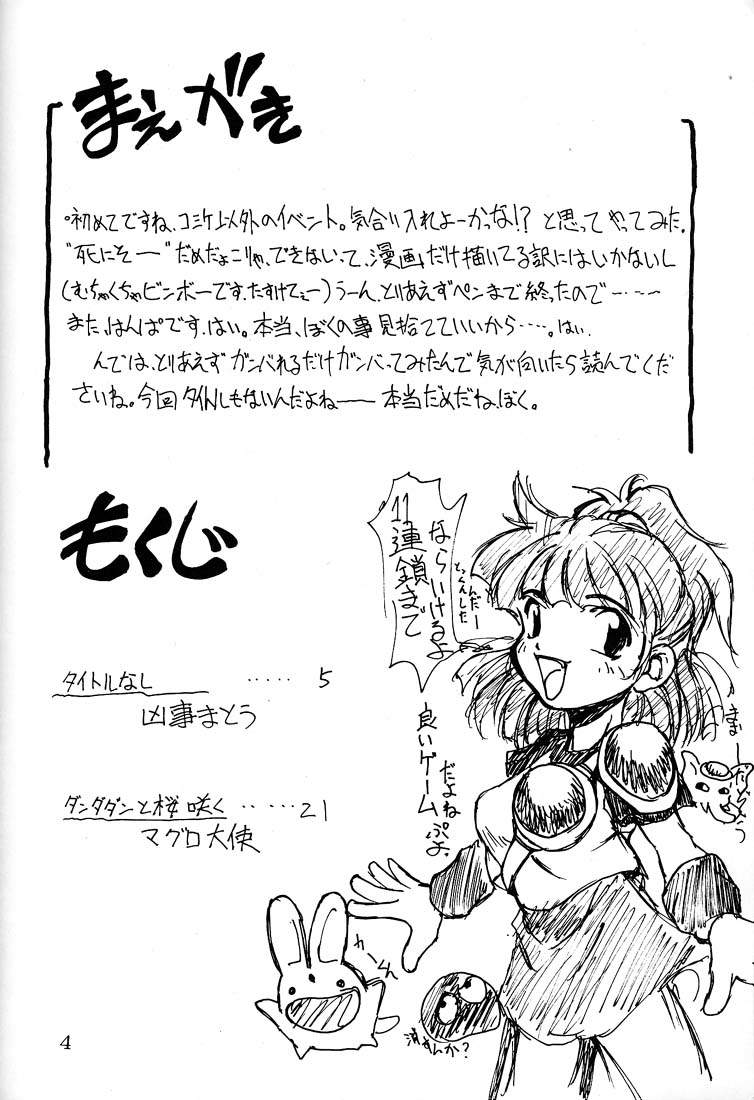 まえがき
。初めてですね、コミケ以外のイベント。気合い入れよーかっな!?と思ってやってみた。
“死にそー”だめだょこりゃ、できないって、漫画だけ描いてる訳にはいかないし
(むちゃくちゃビンボーです、たすけてぇー)うーん、とりあえずペンまで終ったので――――
また、はんぱです、はい。本当、ぼくの事見捨てていいから……。はい.
んでは、とりあえずガンバれるだけガンバってみたんで気が向いたら読んでくだ
さいね。今回タイトルもないんだよね――本当だめだね、ぼく。
もくじ
タイトルなし ····· 5
凶事まとう
ダンダダンと桜咲く ····· 21
マグロ大使
11連鎖まで
ならいけるよ
良いゲーム
だよね
ぷよ、
わーん
済せんか?
4